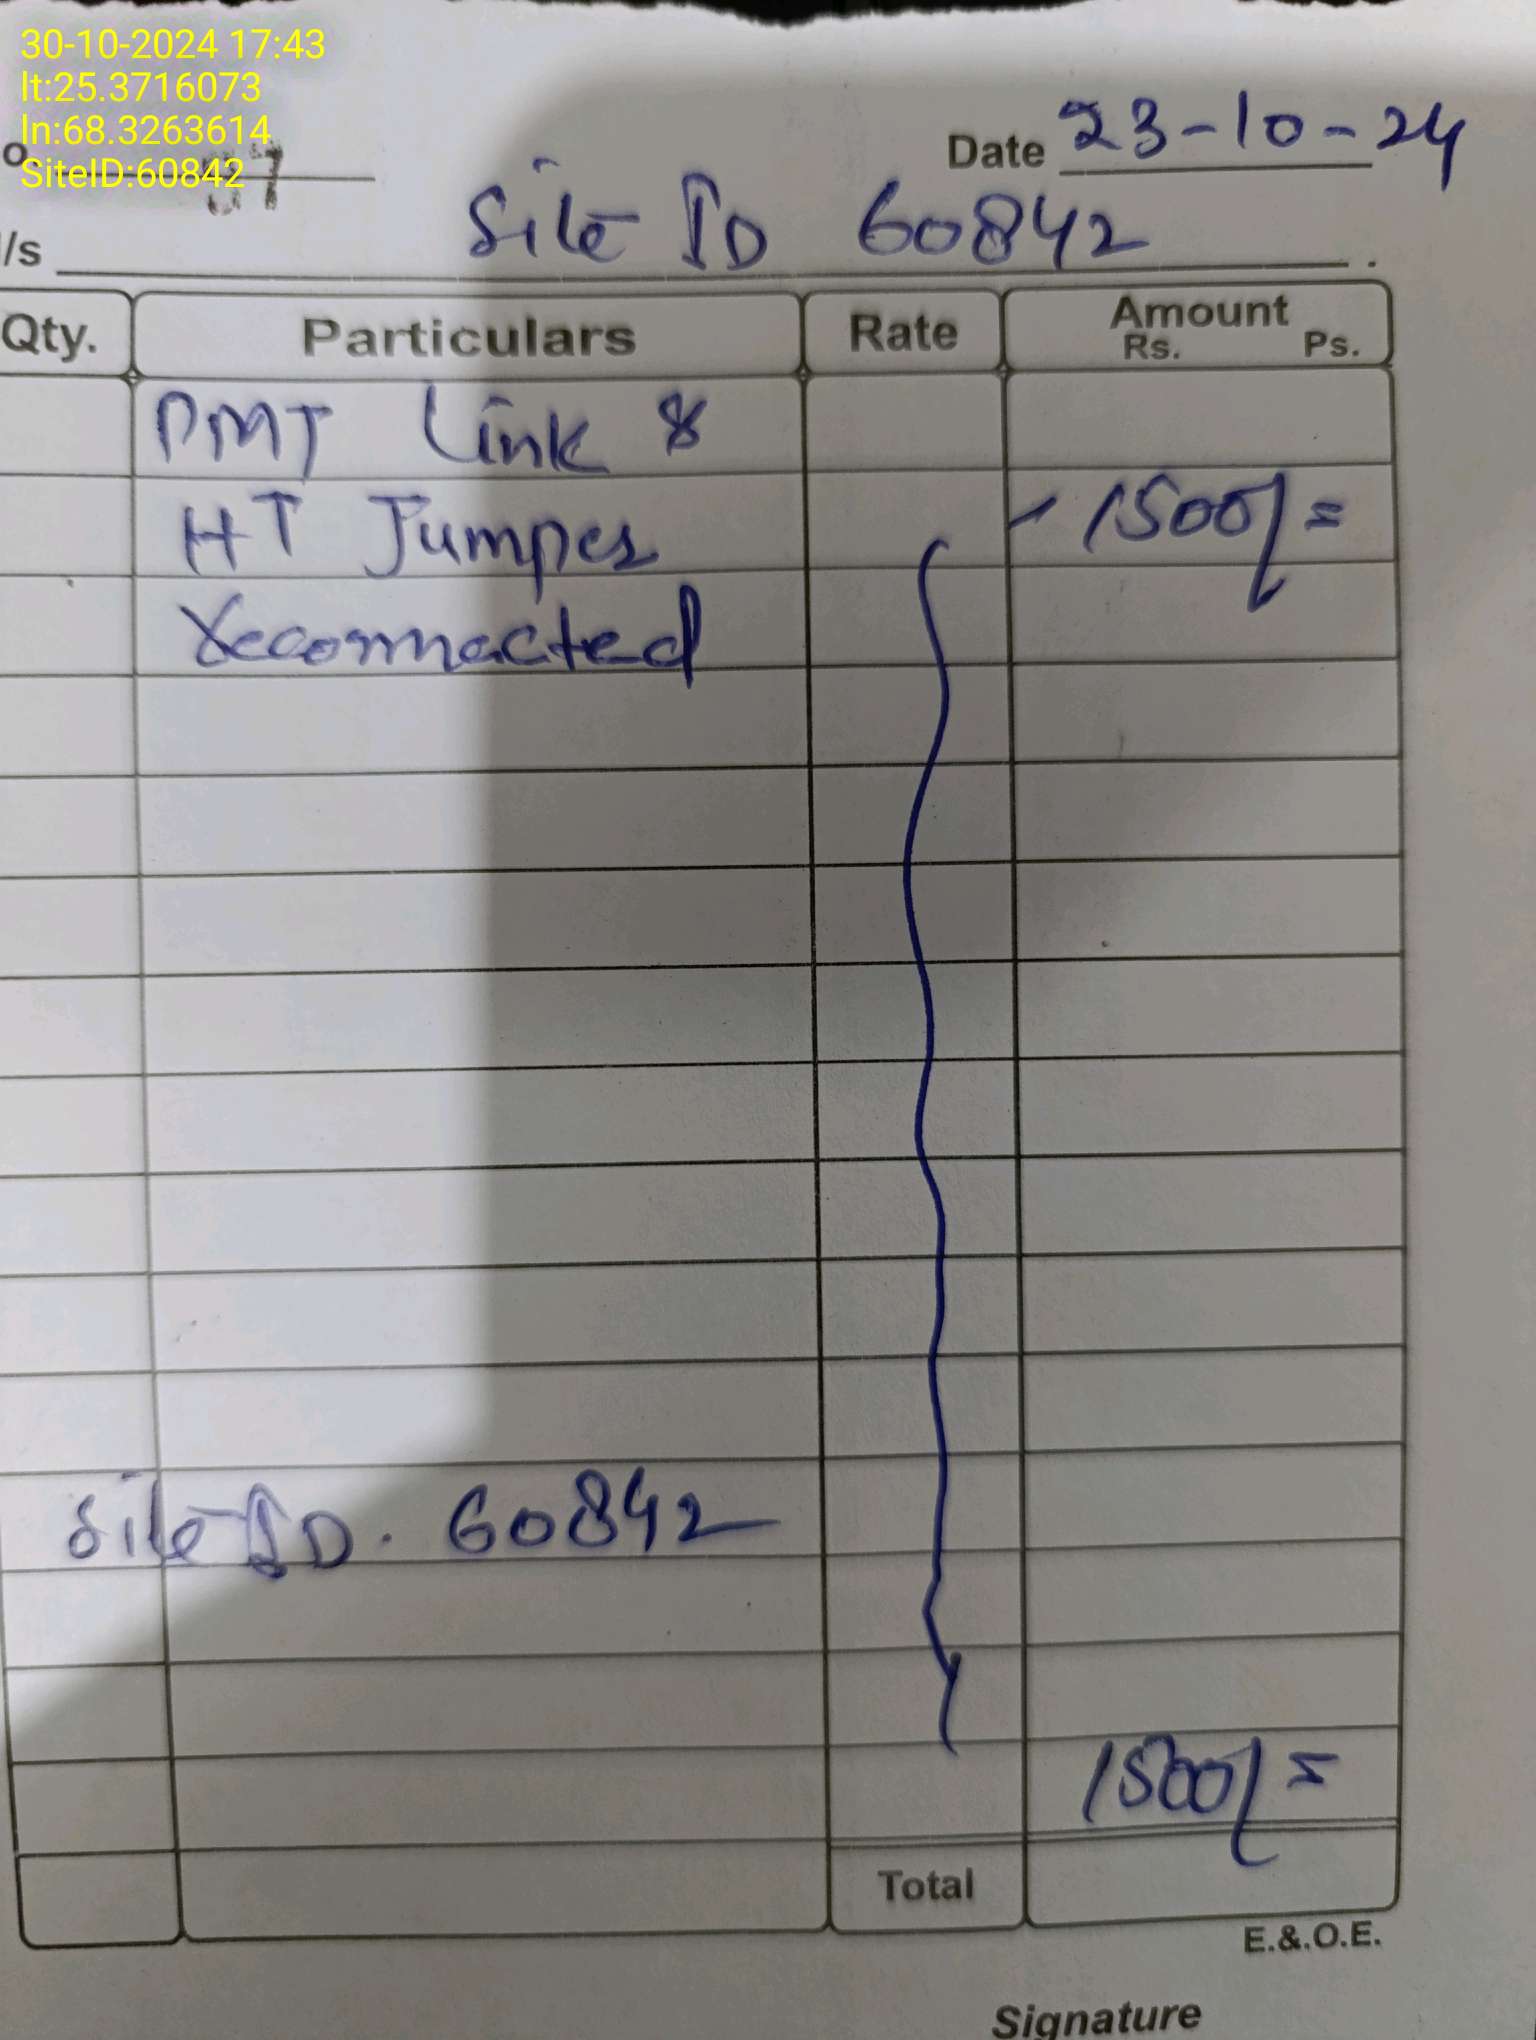 30-10-2024 17:43
lt:25.3716073
ln:68.3263614
SiteID:60842
o.
Date 23-10-24
/s Site ID 60842
Qty. Particulars Rate Amount
Rs. Ps.
PMT Link &
HT Jumper 1500/=
reconnacted
Site ID. 60842
1500/=
Total
E.&.O.E.
Signature